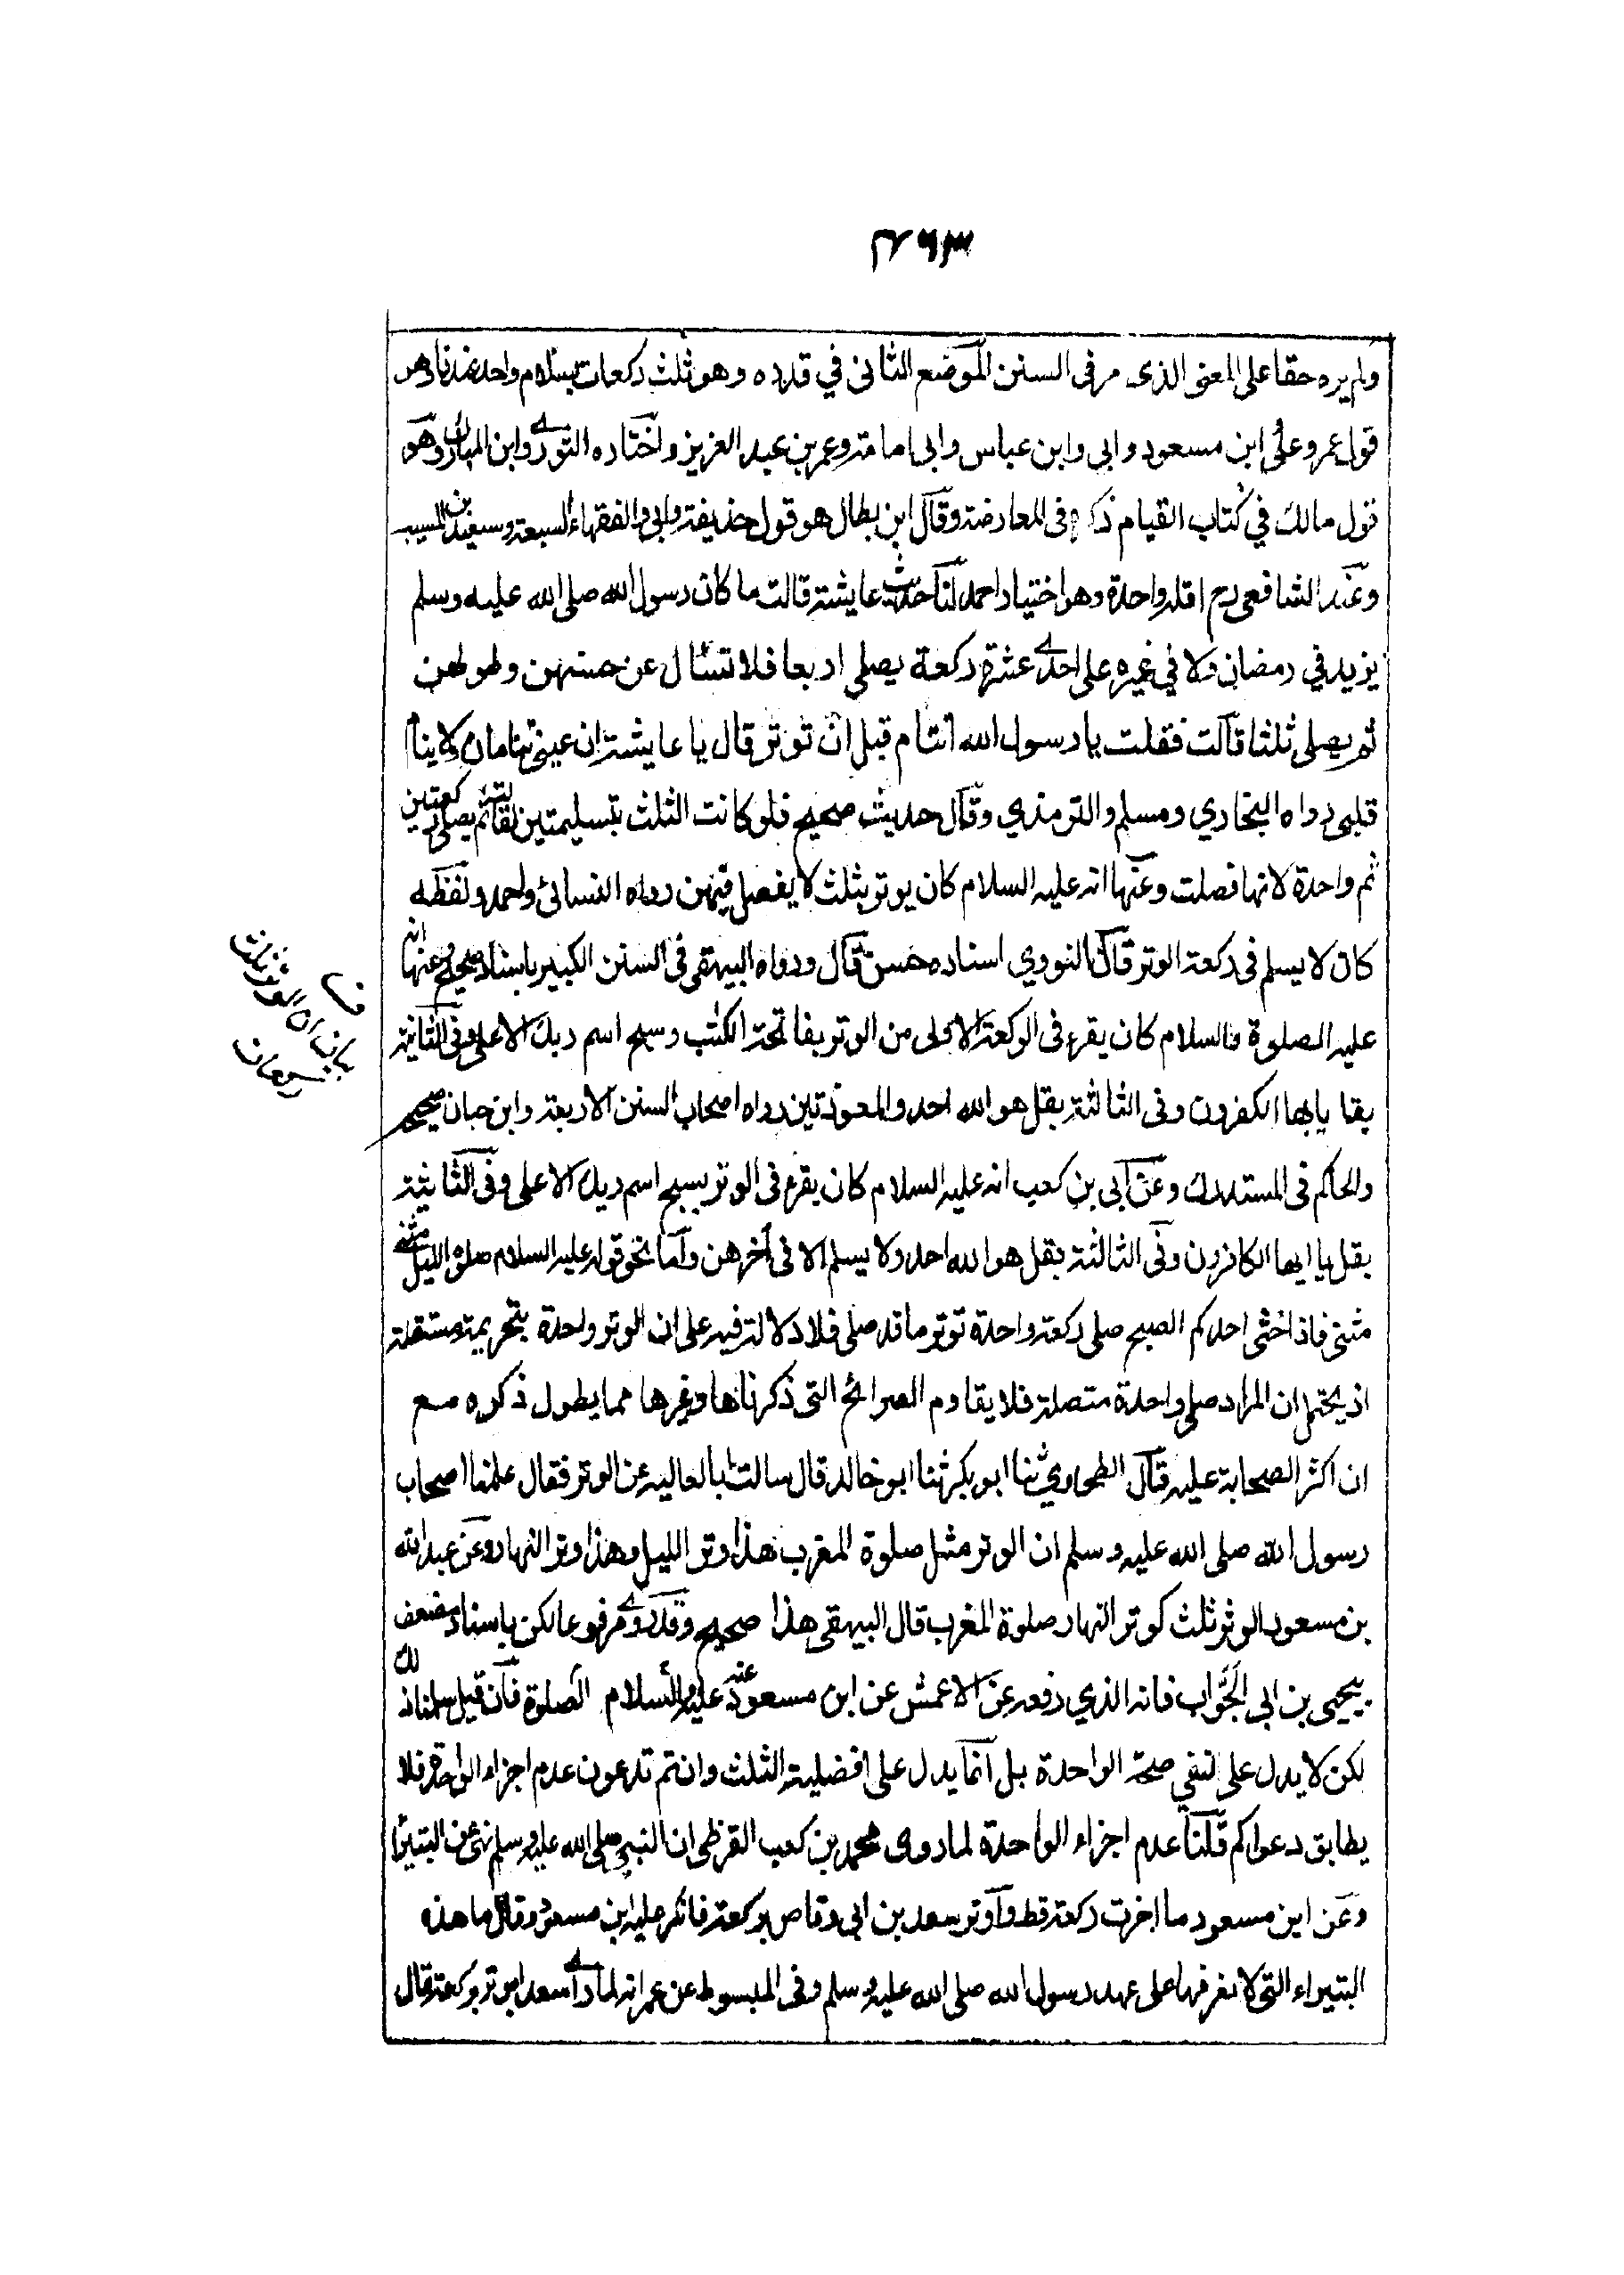 ولم يره حقا على المعنى الذى مر فى السنن الموضع الثانى في قدره وهو ثلث ركعات بسلام واحد عندنا وهو
قول عمر وعلى ابن مسعود وابي وابن عباس وابى امامة وعمر بن عبد العزيز واختاره الثوري وابن المبارك وهو
قول مالك في كتاب القيام فى المعارضة وقال ابن بطال هو قول حذيفة وابي والفقهاء السبعة وسعيد بن المسيب
وعند الشافعى رح اقله واحدة وهو اختيار احمد لنا حديث عايشة قالت ما كان رسول الله صلى الله عليه وسلم
يزيد في رمضان ولا في غيره على احدى عشرة ركعة يصلى اربعا فلا تسئال عن حسنهن وطولهن
ثم يصلى ثلثا قالت فقلت يا رسول الله اتنام قبل ان توتر قال يا عايشة ان عينى تنامان ولا ينام
قلبى رواه البخاري ومسلم والترمذي وقال حديث صحيح فلو كانت الثلث بتسليمتين لقالت ثم يصلى ركعتين
ثم واحدة لانها فصلت وعنها انه عليه السلام كان يوتر بثلث لا يفصل فيهن رواه النسائى واحمد ولفظه
كان لا يسلم فى ركعة الوتر قال النووي اسناده حسن قال ورواه البيهقى فى السنن الكبير باسناد صحيح وعنها انه
عليه الصلوة والسلام كان يقرء فى الركعة الاولى من الوتر بفاتحة الكتب وسبح اسم ربك الاعلى وفى الثانية
بقل يايها الكفرون وفى الثالثة بقل هو الله احد والمعوذتين رواه اصحاب السنن الاربعة وابن حبان صحيحه
والحاكم فى المستدرك وعن ابى بن كعب انه عليه السلام كان يقرء فى الوتر بسبح اسم ربك الاعلى وفى الثانية
بقل يا ايها الكافرون وفى الثالثة بقل هو الله احد ولا يسلم الا فى اخرهن واما نحو قوله عليه السلام صلوة الليل مثنى
مثنى فاذا خشى احدكم الصبح صلى ركعة واحدة توتر ما قد صلى فلا دلالة فيه على ان الوتر واحدة بتحريمة مستقلة
اذ يحتمل ان المراد صلى واحدة متصلة فلا يقاوم الصرائح التى ذكرناها وغيرها مما يطول ذكره مع
ان اكثر الصحابة عليه قال الطحاوي ثنا ابو بكر ثنا ابو خالد قال سالت ابا العالية عن الوتر فقال علمنا اصحاب
رسول الله صلى الله عليه وسلم ان الوتر مثل صلوة المغرب هذا وتر الليل وهذا وتر النهار وعن عبد الله
بن مسعود الوتر ثلث كوتر النهار صلوة المغرب قال البيهقى هذا صحيح وقد روي مرفوعا لكن باسناد ضعف
يحيى بن ابى الحواب فانه الذي رفعه عن الاعمش عن ابن مسعود عنه عليه السلام الصلوة فان قيل سلمنا ذلك
لكن لا يدل على نفي صحة الواحدة بل انما يدل على افضلية الثلث وانتم تدعون عدم اجزاء الواحدة فلا
يطابق دعواكم قلنا عدم اجزاء الواحدة لما روى محمد بن كعب القرظى ان النبى صلى الله عليه وسلم نهى عن البتيرا
وعن ابن مسعود ما اجزت ركعة قط واوتر سعد بن ابى وقاص بركعة فانكر عليه ابن مسعود وقال ما هذه
البتيراء التى لا نعرفها على عهد رسول الله صلى الله عليه وسلم وفى المبسوط عن عمر انه لما راى سعد ابوتر بركعة قال